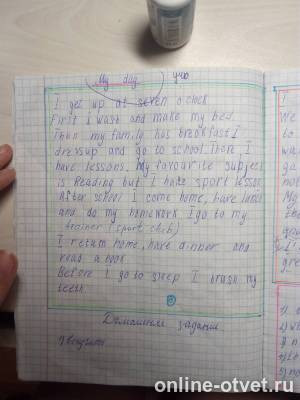 My day
I get up at seven o'clock
First I wash and make my bed.
Then my family has breakfast. I
dress up and go to school. There, I
have lessons. My favourite subject
is Reading but I hate sport lesson.
After school I come home, have lunch
and do my homework. I go to my
trainer (sport club)
I return home, have dinner and
read a book.
Before I go to sleep I brush my
teeth.
Домашнее задание
online-otvet.ru